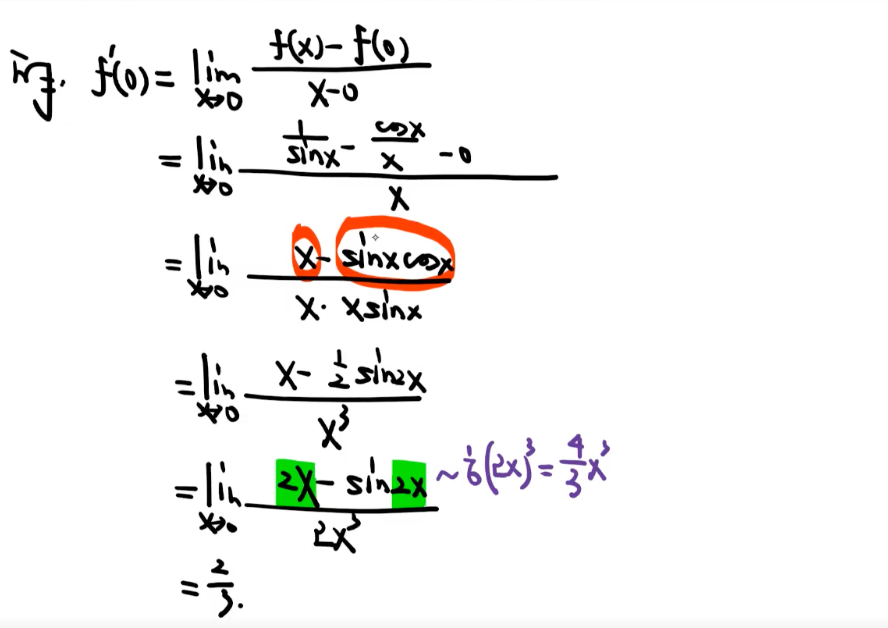 解. f'(0) = lim_{x→0} \frac{f(x) - f(0)}{x - 0}
= lim_{x→0} \frac{\frac{1}{sinx} - \frac{cosx}{x} - 0}{x}
= lim_{x→0} \frac{x - sinxcosx}{x · xsinx}
= lim_{x→0} \frac{x - \frac{1}{2} sin2x}{x^3}
= lim_{x→0} \frac{2x - sin2x}{2x^3} ~ \frac{1}{6}(2x)^3 = \frac{4}{3}x^3
= \frac{2}{3}.